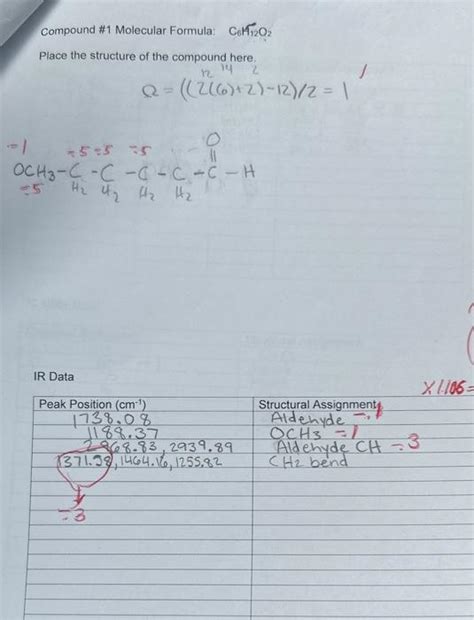 Compound #1 Molecular Formula: C6H12O2
Place the structure of the compound here.
12 14 2
Ω = ((2(6)+2)-12)/2 = 1
-1 -.5 -.5 -.5 O
OCH3-C-C-C-C-C-H
-.5 H2 H2 H2 H2
IR Data
X1.106=
Peak Position (cm-1) Structural Assignment
1738.08 Aldehyde -1
1188.37 OCH3 -1
2968.83, 2939.89 Aldehyde CH -3
1371.38, 1464.16, 1255.82 CH2 bend
-3